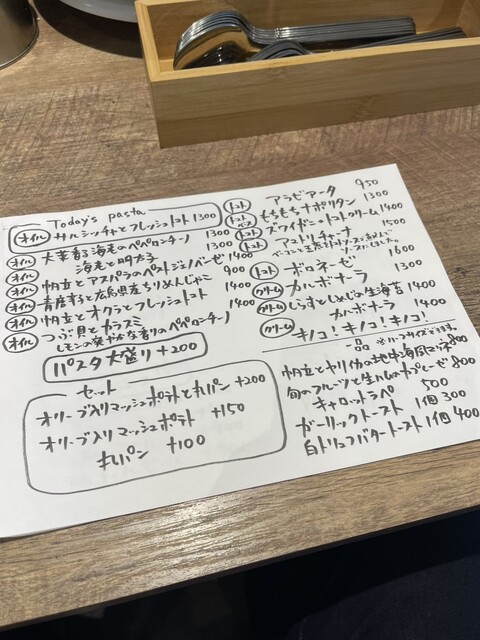 Today's pasta
オイル サルシッチャとフレッシュトマト 1300
オイル 大葉香る海老のペペロンチーノ 1300
オイル 海老と明太子 1300
オイル 帆立とアスパラのペストジェノベーゼ 1400
オイル 青唐すじと広島県産ちりめんじゃこ 900
オイル 帆立とオクラとフレッシュトマト 1400
オイル つぶ貝とカラスミ 1400
レモンの爽やかな香りのペペロンチーノ
パスタ大盛り +200
セット
オリーブ入りマッシュポテトと丸パン +200
オリーブ入りマッシュポテト +150
丸パン +100
トマト アラビアータ 950
トマト もちもちナポリタン 1300
ズワイガニのトマトクリーム 1400
トマト アマトリチャーナ 1500
トマト ボロネーゼ 1600
クリーム カルボナーラ 1300
クリーム しらすとしめじの生海苔カルボナーラ 1400
クリーム キノコ!キノコ!キノコ! 1400
一品 ※ハーフサイズできます。
帆立とヤリイカの地中海風マリネ 800
旬のフルーツと生ハムのカプレーゼ 800
キャロットラペ 500
ガーリックトースト 1個 300
白トリュフバタートースト 1個 400